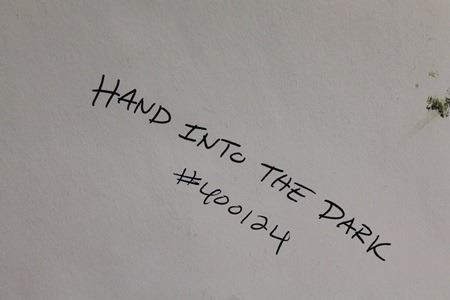 HAND INTO THE DARK
#400124